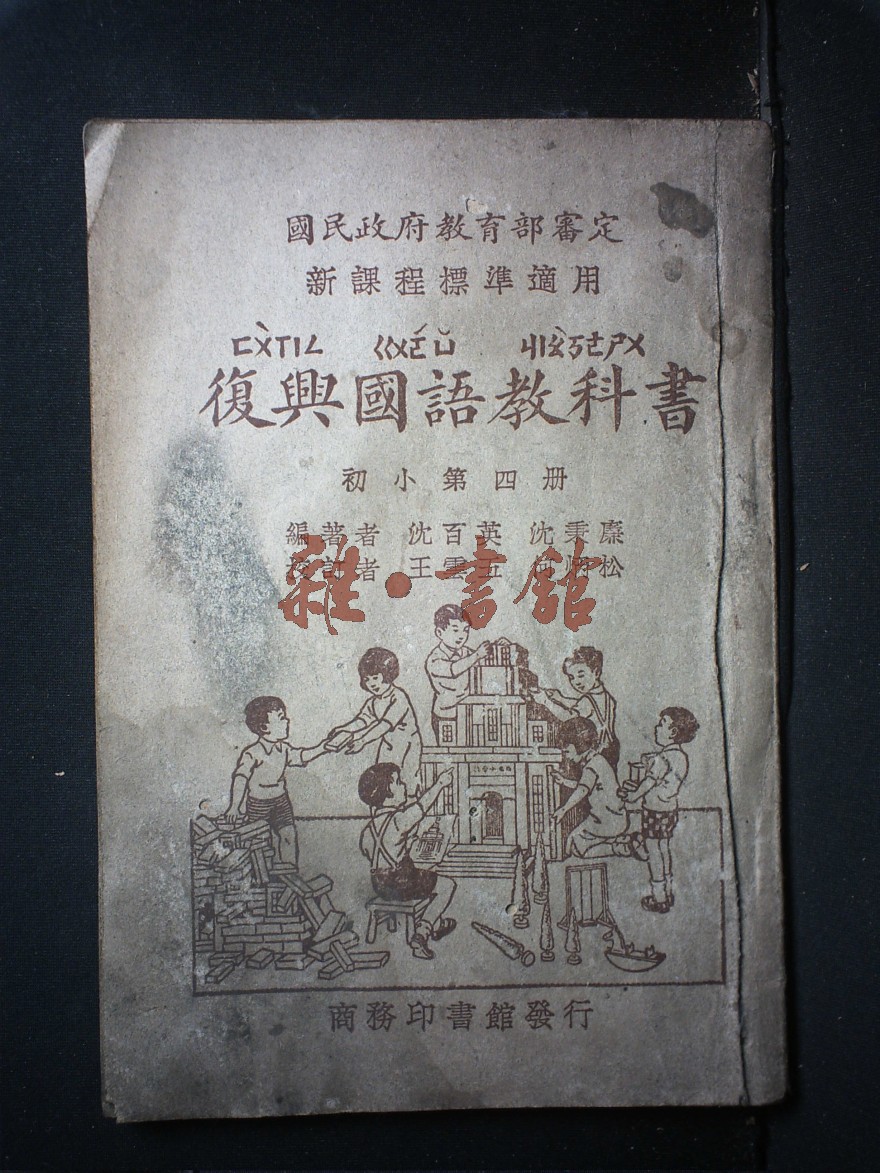 國民政府教育部審定
新課程標準適用
ㄈㄨˋㄒㄧㄥ ㄍㄨㄛˊㄩˇ ㄐㄧㄠˋㄎㄜㄕㄨ
復興國語教科書
初小第四册
編著者 沈百英 沈秉廉
校訂者 王雲五 何炳松
雜·書館
商務印書館發行